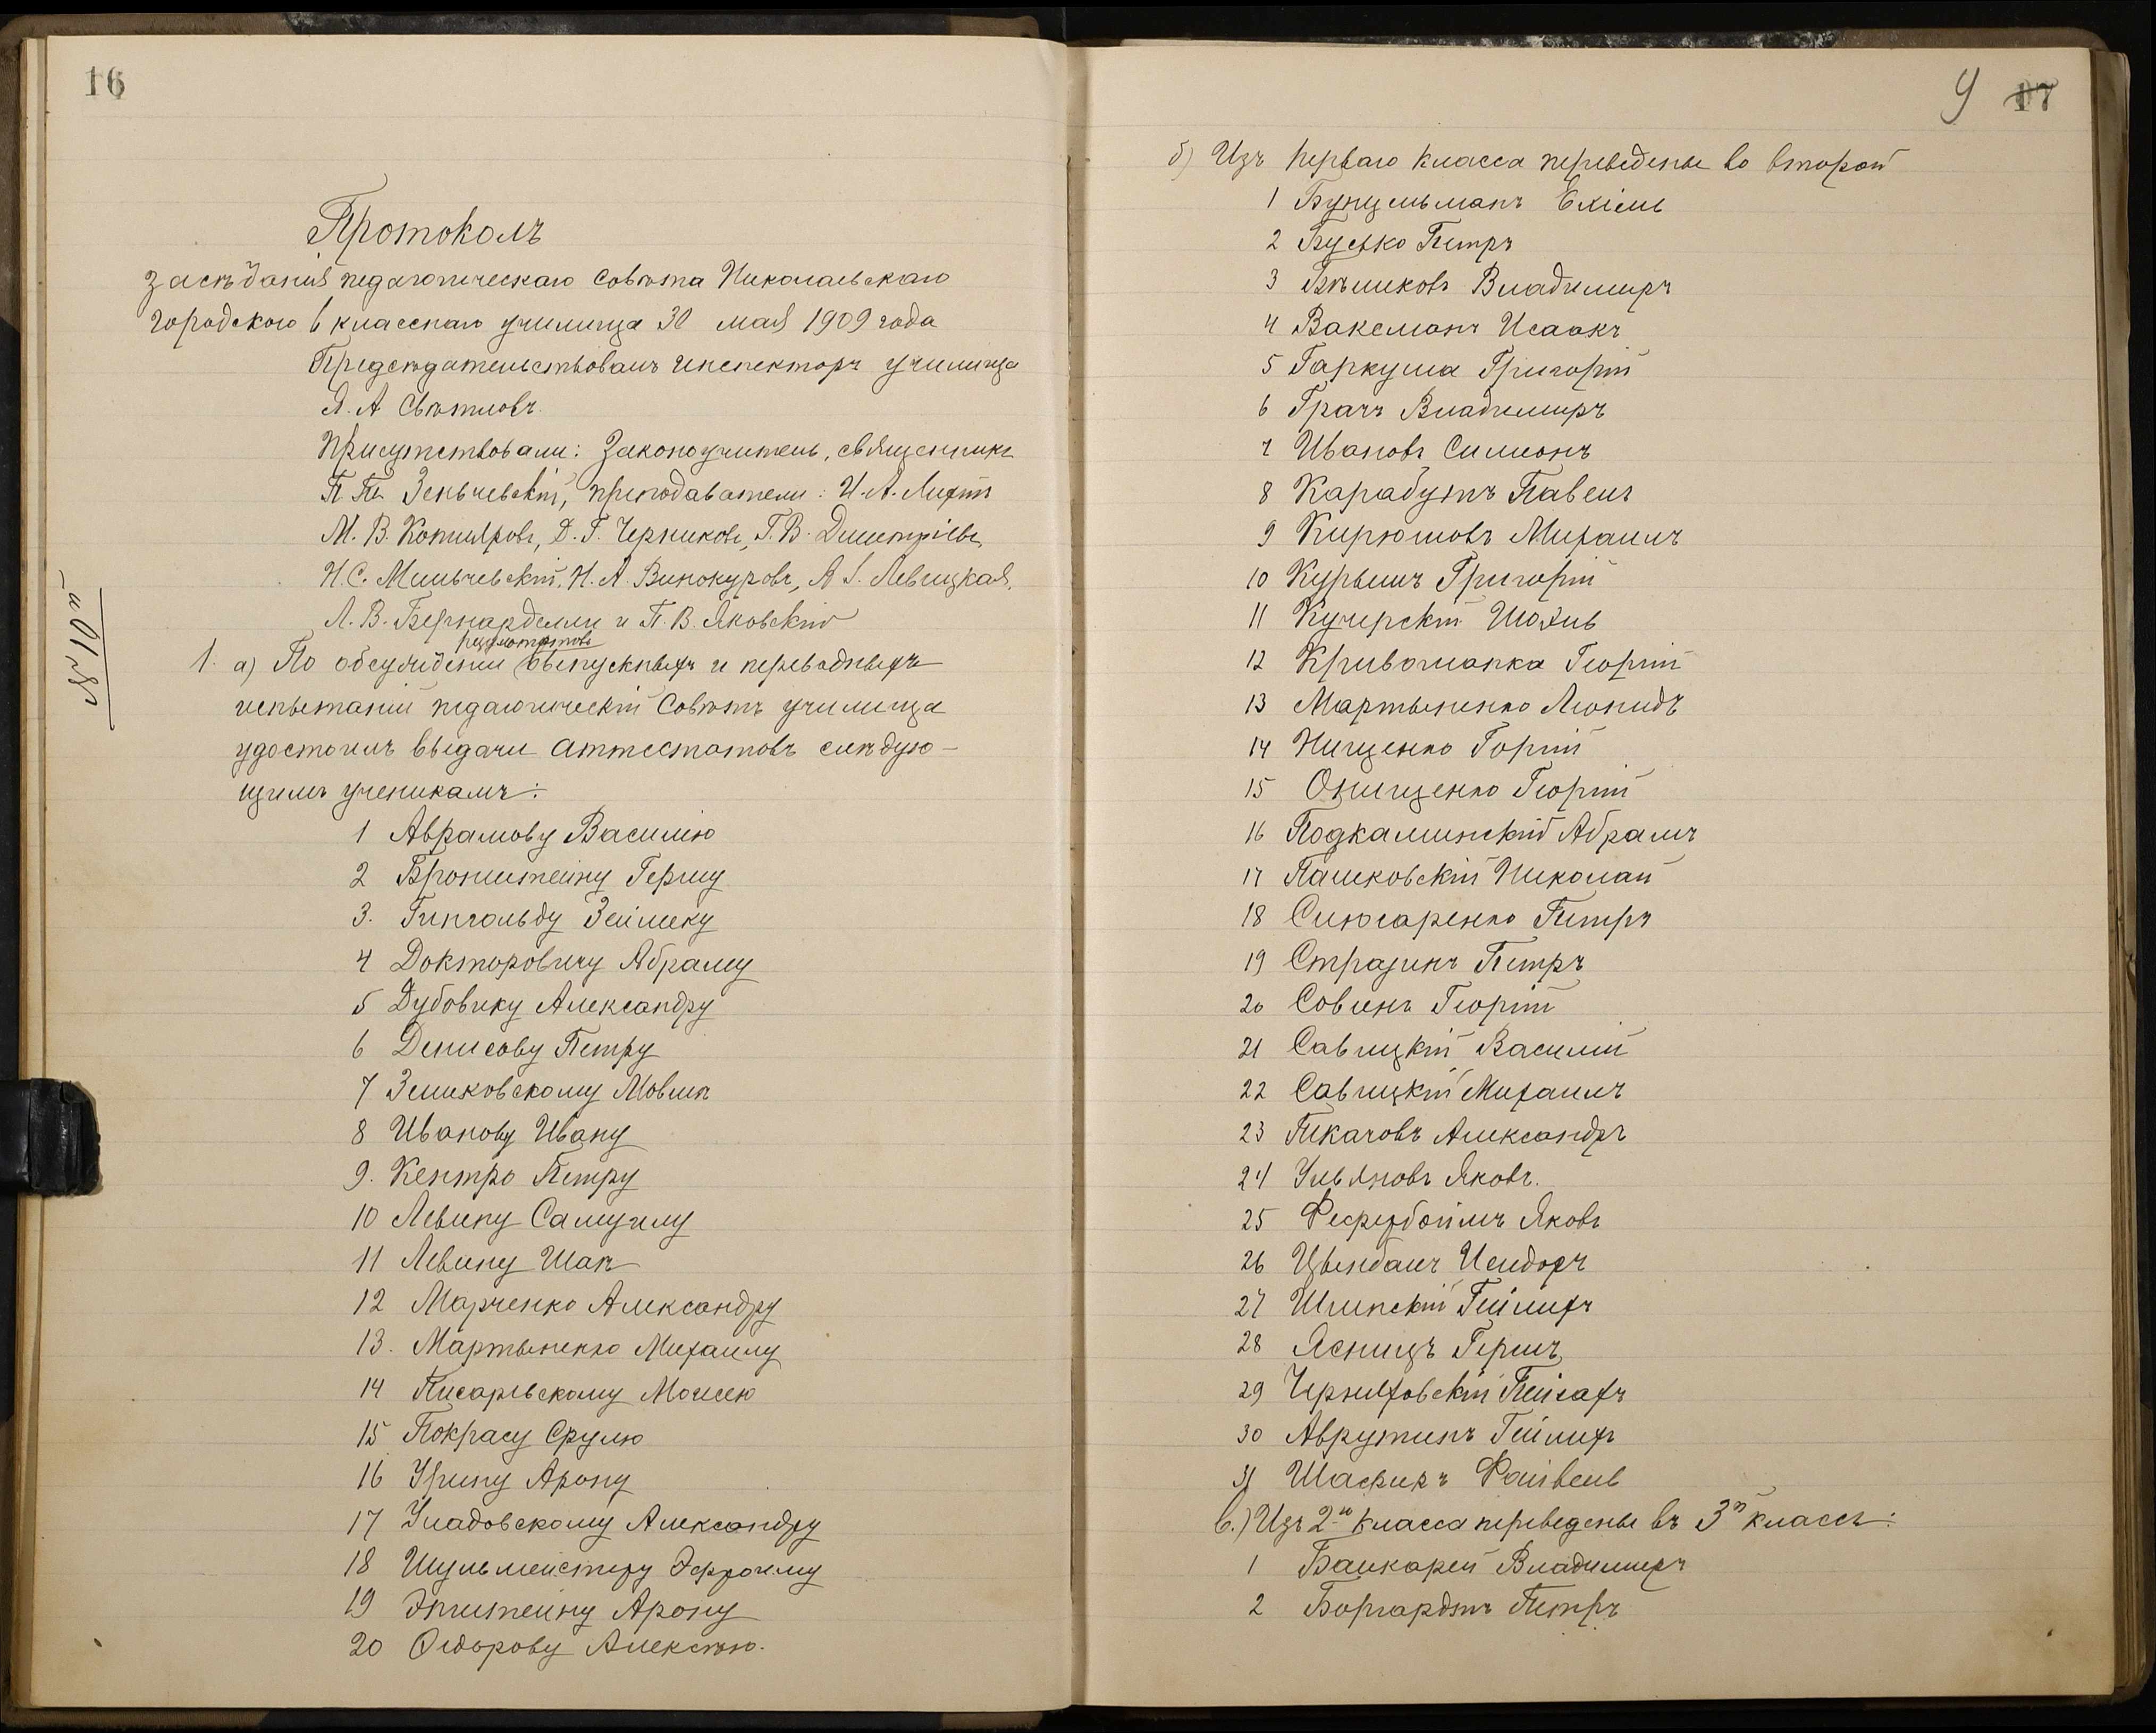 16
Протоколъ
засѣданія педагогическаго совѣта Николаевскаго
городского 6 класснаго училища 30 мая 1909 года
Предсѣдательствовалъ инспекторъ училища
А. А Свѣтловъ.
Присутствовали: Законоучитель, священникъ
П. Зеньчевскій, преподаватели: И. А. Лифт
М. В. Котляровъ, Д. Г. Черниковъ, Г. В. Димитріевъ,
Н. С. Мильчевскій, Н. А. Винокуровъ, А. І. Левицкая,
Л. В. Бернарделли и П. В. Яковскій
результатовъ
1. а) По обсужденіи выпускныхъ и переводныхъ
испытаній педагогическій Совѣтъ училища
удостоилъ выдачи аттестатовъ слѣдую-
щимъ ученикамъ:
1 Аврамову Василію
2 Бронштейну Гершу
3. Гингольду Зейлику
4 Докторовичу Абраму
5 Дубовику Александру
6 Денисову Петру
7 Зешковскому Мовшѣ
8 Иванову Ивану
9. Кентро Петру
10 Левину Самуилу
11 Левину Шаѣ
12 Марченко Александру
13. Мартыненко Михаилу
14 Писаревскому Моисею
15 Покрасу Срулю
16 Урину Арону
17 Уладовскому Александру
18 Шульмейстеру Эфроиму
19 Эпштейну Арону
20 Ѳедорову Алексѣю.
9 17
б) Изъ перваго класса переведены во второй
1 Бунцельманъ Ехіель
2 Буєько Петръ
3 Бѣликовъ Владимиръ
4 Ваксманъ Исаакъ
5 Гаркуша Григорій
6 Грачъ Владимиръ
7 Ивановъ Симеонъ
8 Карабутъ Павелъ
9 Кирюшовъ Михаилъ
10 Курышъ Григорій
11 Кучерскій
12 Кривошапка Георгій
13 Мартыненко Леонидъ
14 Нищенко Горгій
15 Онищенко Георгій
16 Подкаминскій Абрамъ
17 Пашковскій Николай
18 Слюсаренко Петръ
19 Стразинъ Петръ
20 Совинъ Георгій
21 Савицкій Василій
22 Савицкій Михаилъ
23 Ткачовъ Александръ
24 Ульяновъ Яковъ.
25 Яковъ
26 Цвендаль Исидоръ
27 Шлинскій
28 Ясницъ Гершъ
29 Черняховскій Пейсахъ
30 Аврутинъ
31 Шафиръ Файвель
в.) Изъ 2го класса переведены въ 3й классъ:
1 Башкарей Владимиръ
2 Боргардтъ Петръ